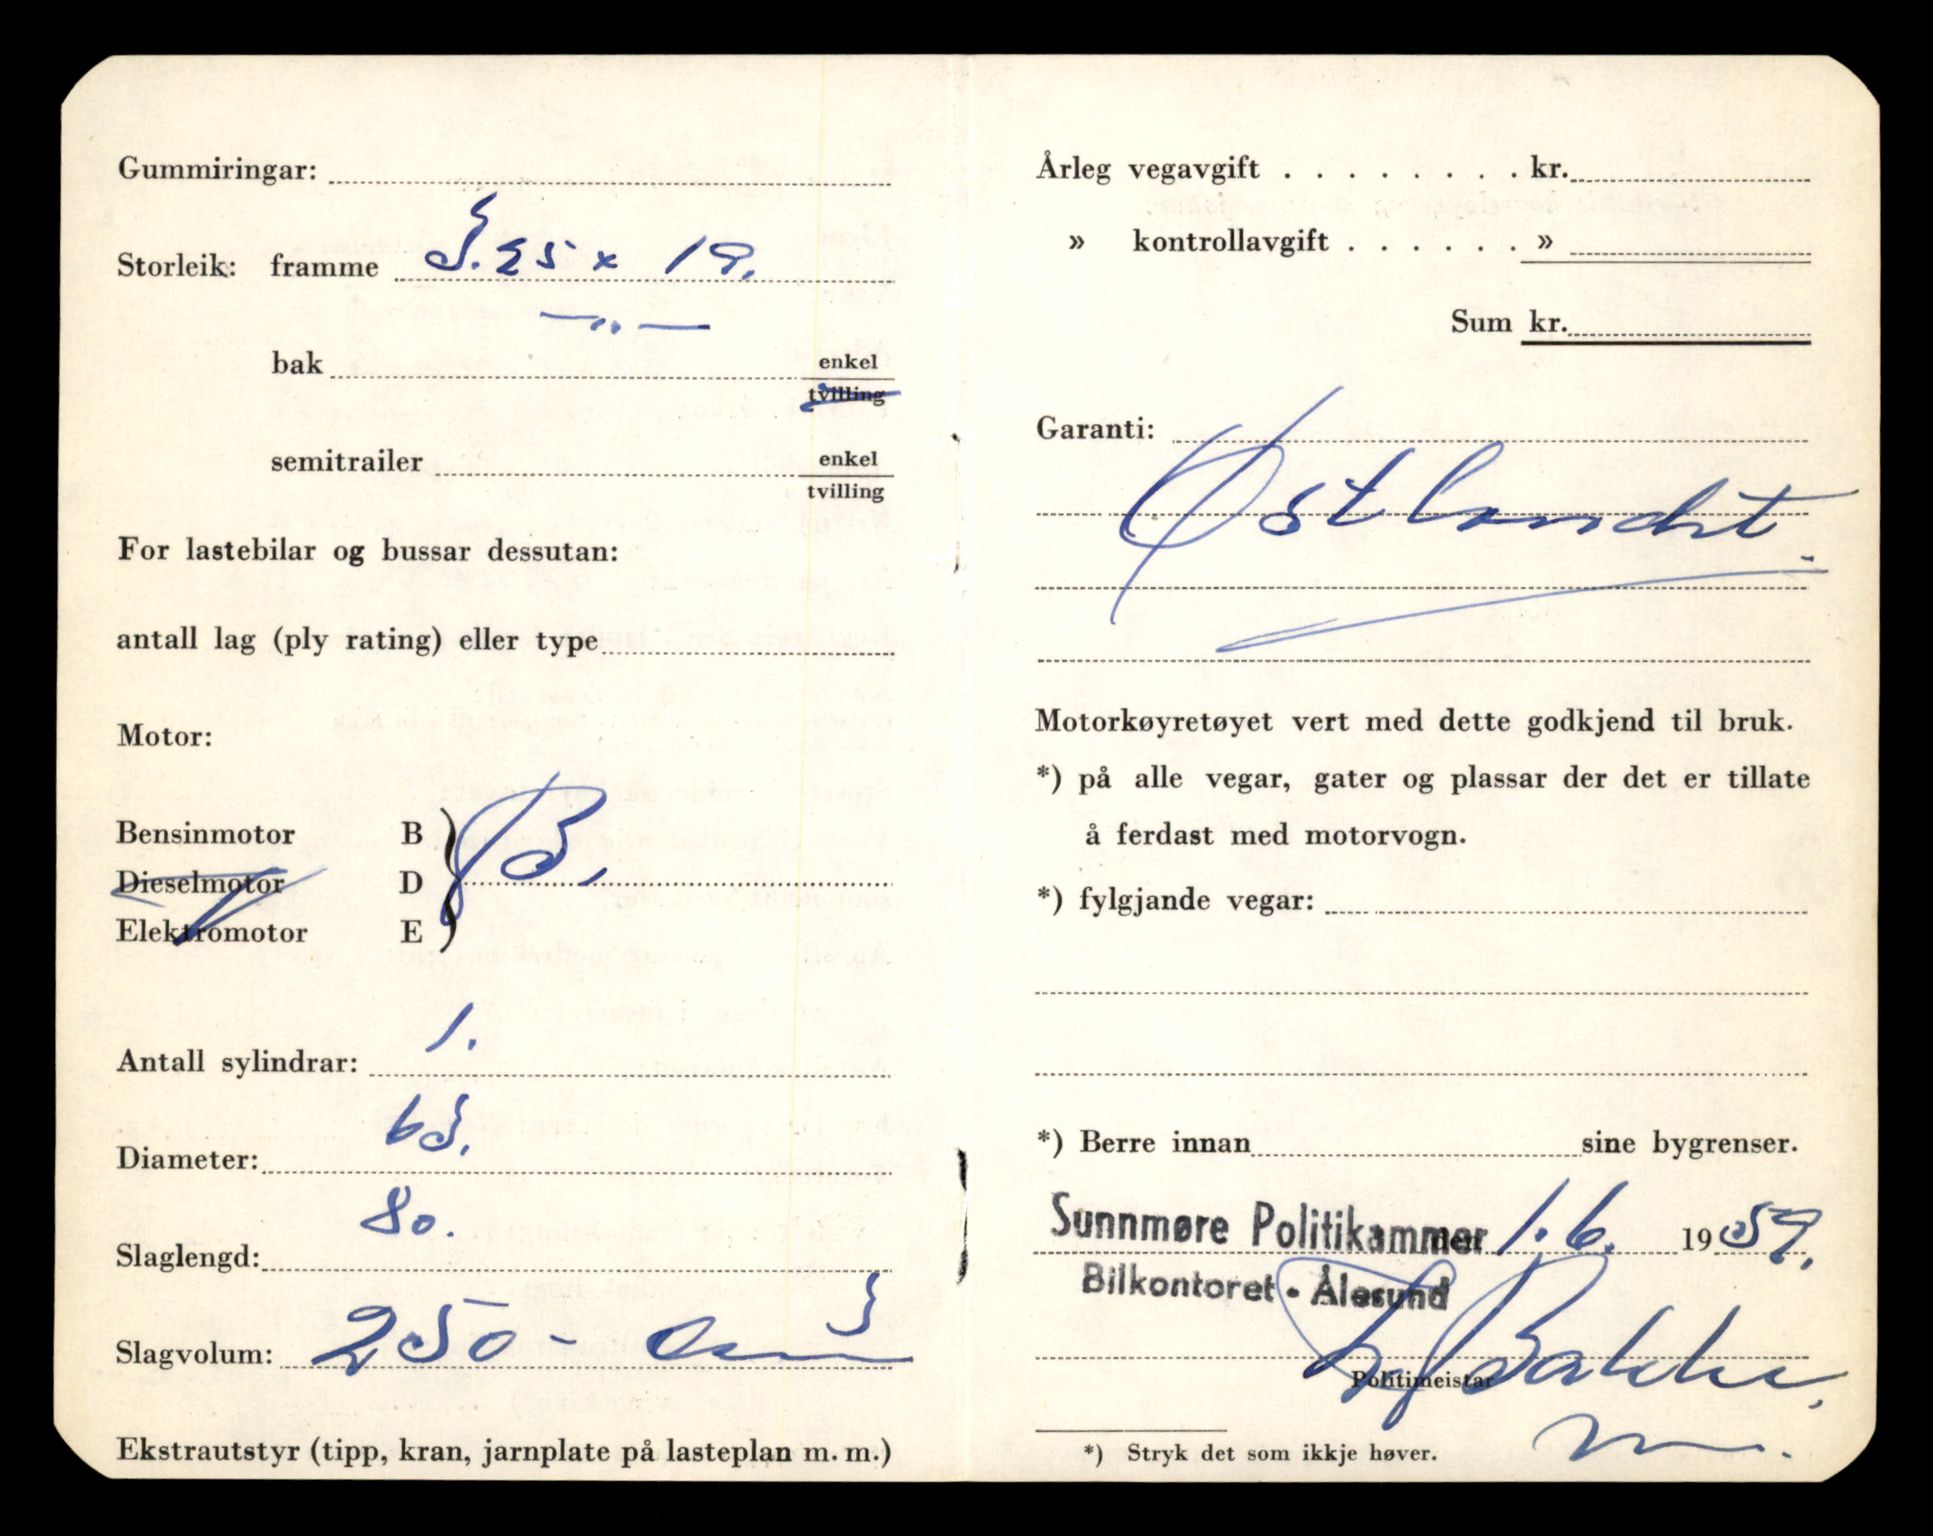 Gummiringar:
Storleik: framme 3.25 x 19.
— „ —
bak enkel
tvilling
semitrailer enkel
tvilling
For lastebilar og bussar dessutan:
antall lag (ply rating) eller type
Motor:
Bensinmotor B
Dieselmotor D B.
Elektromotor E
Antall sylindrar: 1.
Diameter: 63.
Slaglengd: 80.
Slagvolum: 250 - cm3
Ekstrautstyr (tipp, kran, jarnplate på lasteplan m. m.)
Årleg vegavgift . . . . . . . . kr.
» kontrollavgift . . . . . . »
Sum kr.
Garanti:
Østlandet.
Motorkøyretøyet vert med dette godkjend til bruk.
*) på alle vegar, gater og plassar der det er tillate
å ferdast med motorvogn.
*) fylgjande vegar:
*) Berre innan sine bygrenser.
Sunnmøre Politikammer den 1.6. 1959.
Bilkontoret - Ålesund
Bakke.
Politimeistar
*) Stryk det som ikkje høver.